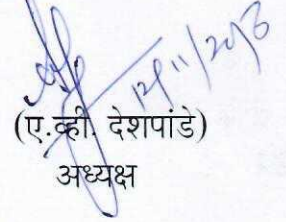 12/11/2013
(ए.व्ही. देशपांडे)
अध्यक्ष